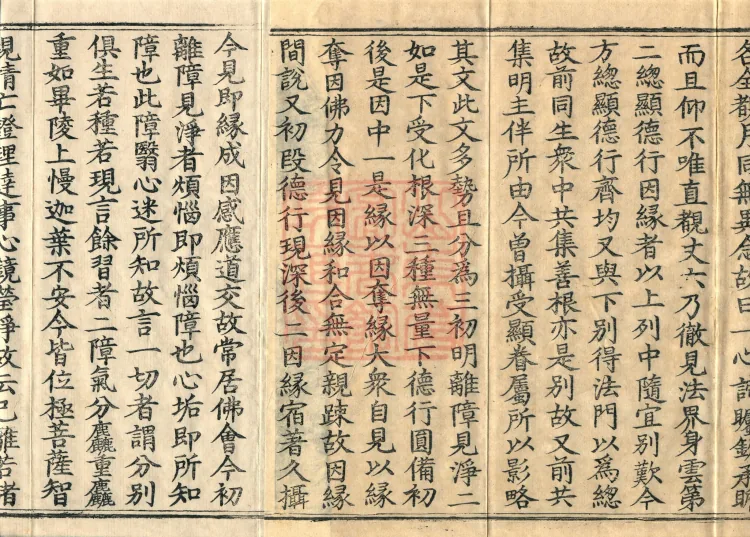 無異念故曰一心
而且仰不唯直觀丈六乃徹見法界身雲第
二總顯德行因緣者以上列中隨宜別歎今
方總顯德行齊均又與下別得法門以為總
故前同生衆中共集善根亦是別故又前共
集明主伴所由今曾攝受顯眷屬所以影略
其文此文多勢且分為三初明離障見淨二
如是下受化根深三種無量下德行圓備初
後是因中一是緣以因奪緣大衆自見以緣
奪因佛力令見因緣和合無定親踈故因緣
間說又初段德行現深後二因緣宿著久攝
今見即緣成因感應道交故常居佛會今初
離障見淨者煩惱即煩惱障也心垢即所知
障也此障翳心迷所知故言一切者謂分別
俱生若種若現言餘習者二障氣分麤重麤
重如畢陵上慢迦葉不安今皆位極菩薩智
現情亡證理達事心鏡瑩淨故云已離若者